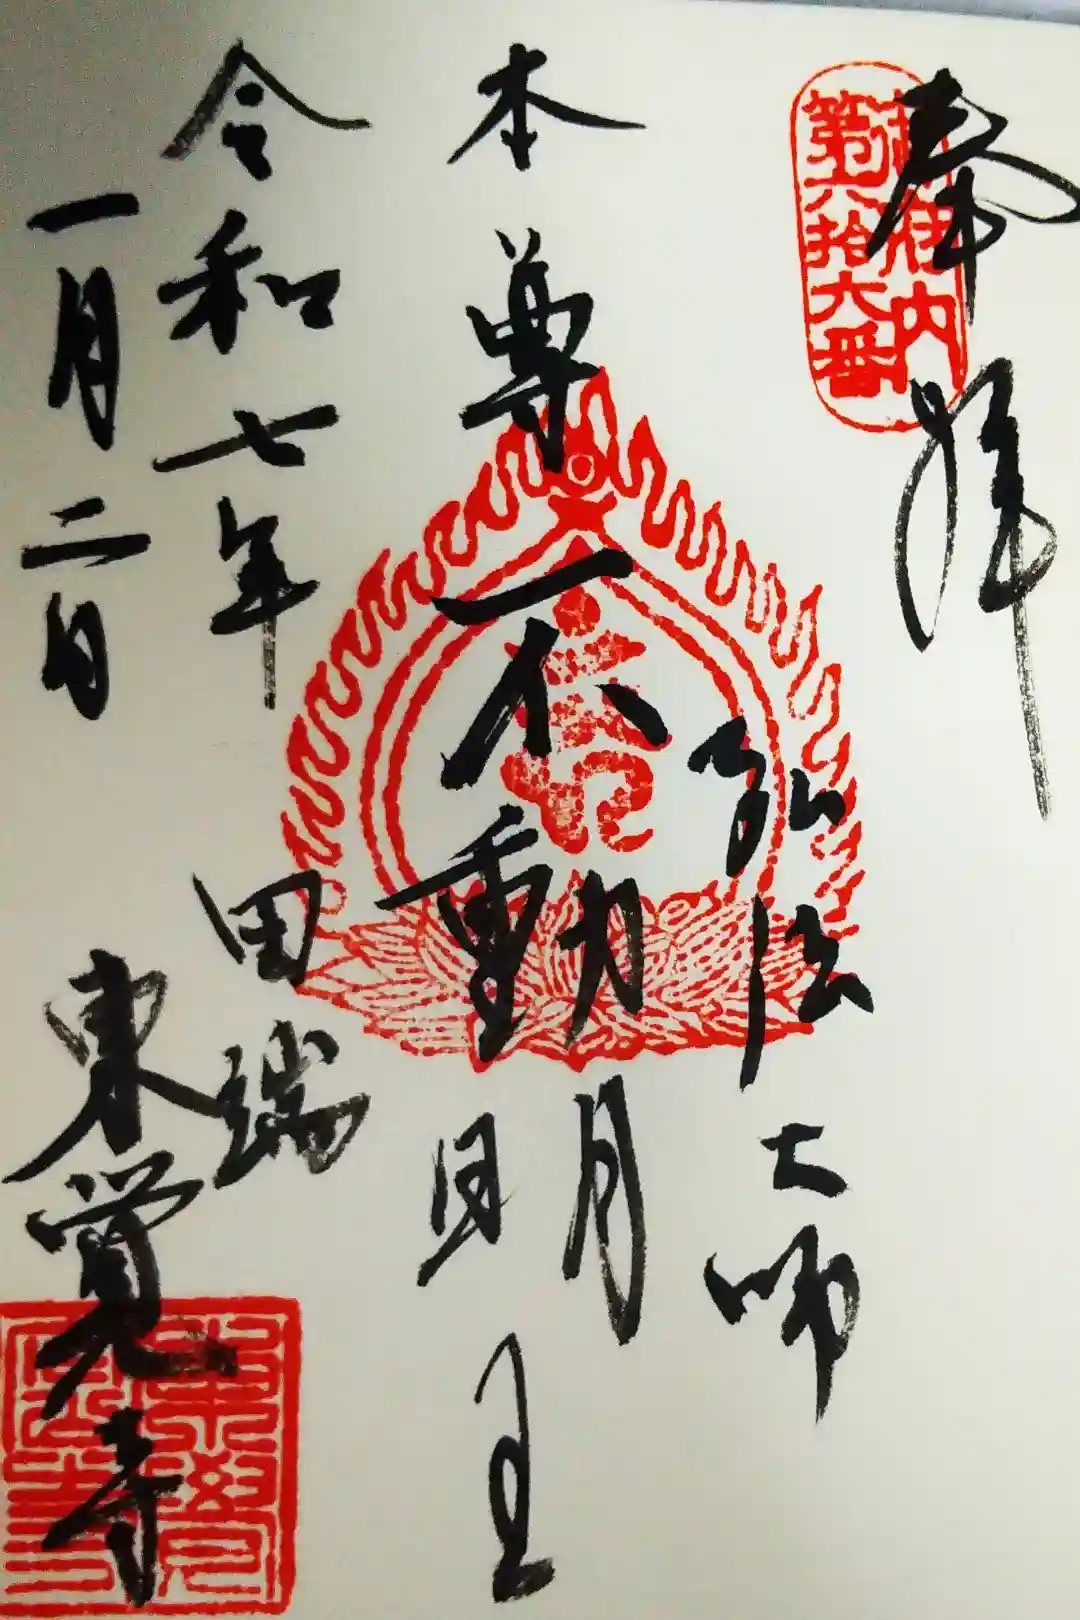 奉拝
御府内
第六拾六番
弘法大師
本尊不動明王
令和七年
一月二日
田端
東覚寺